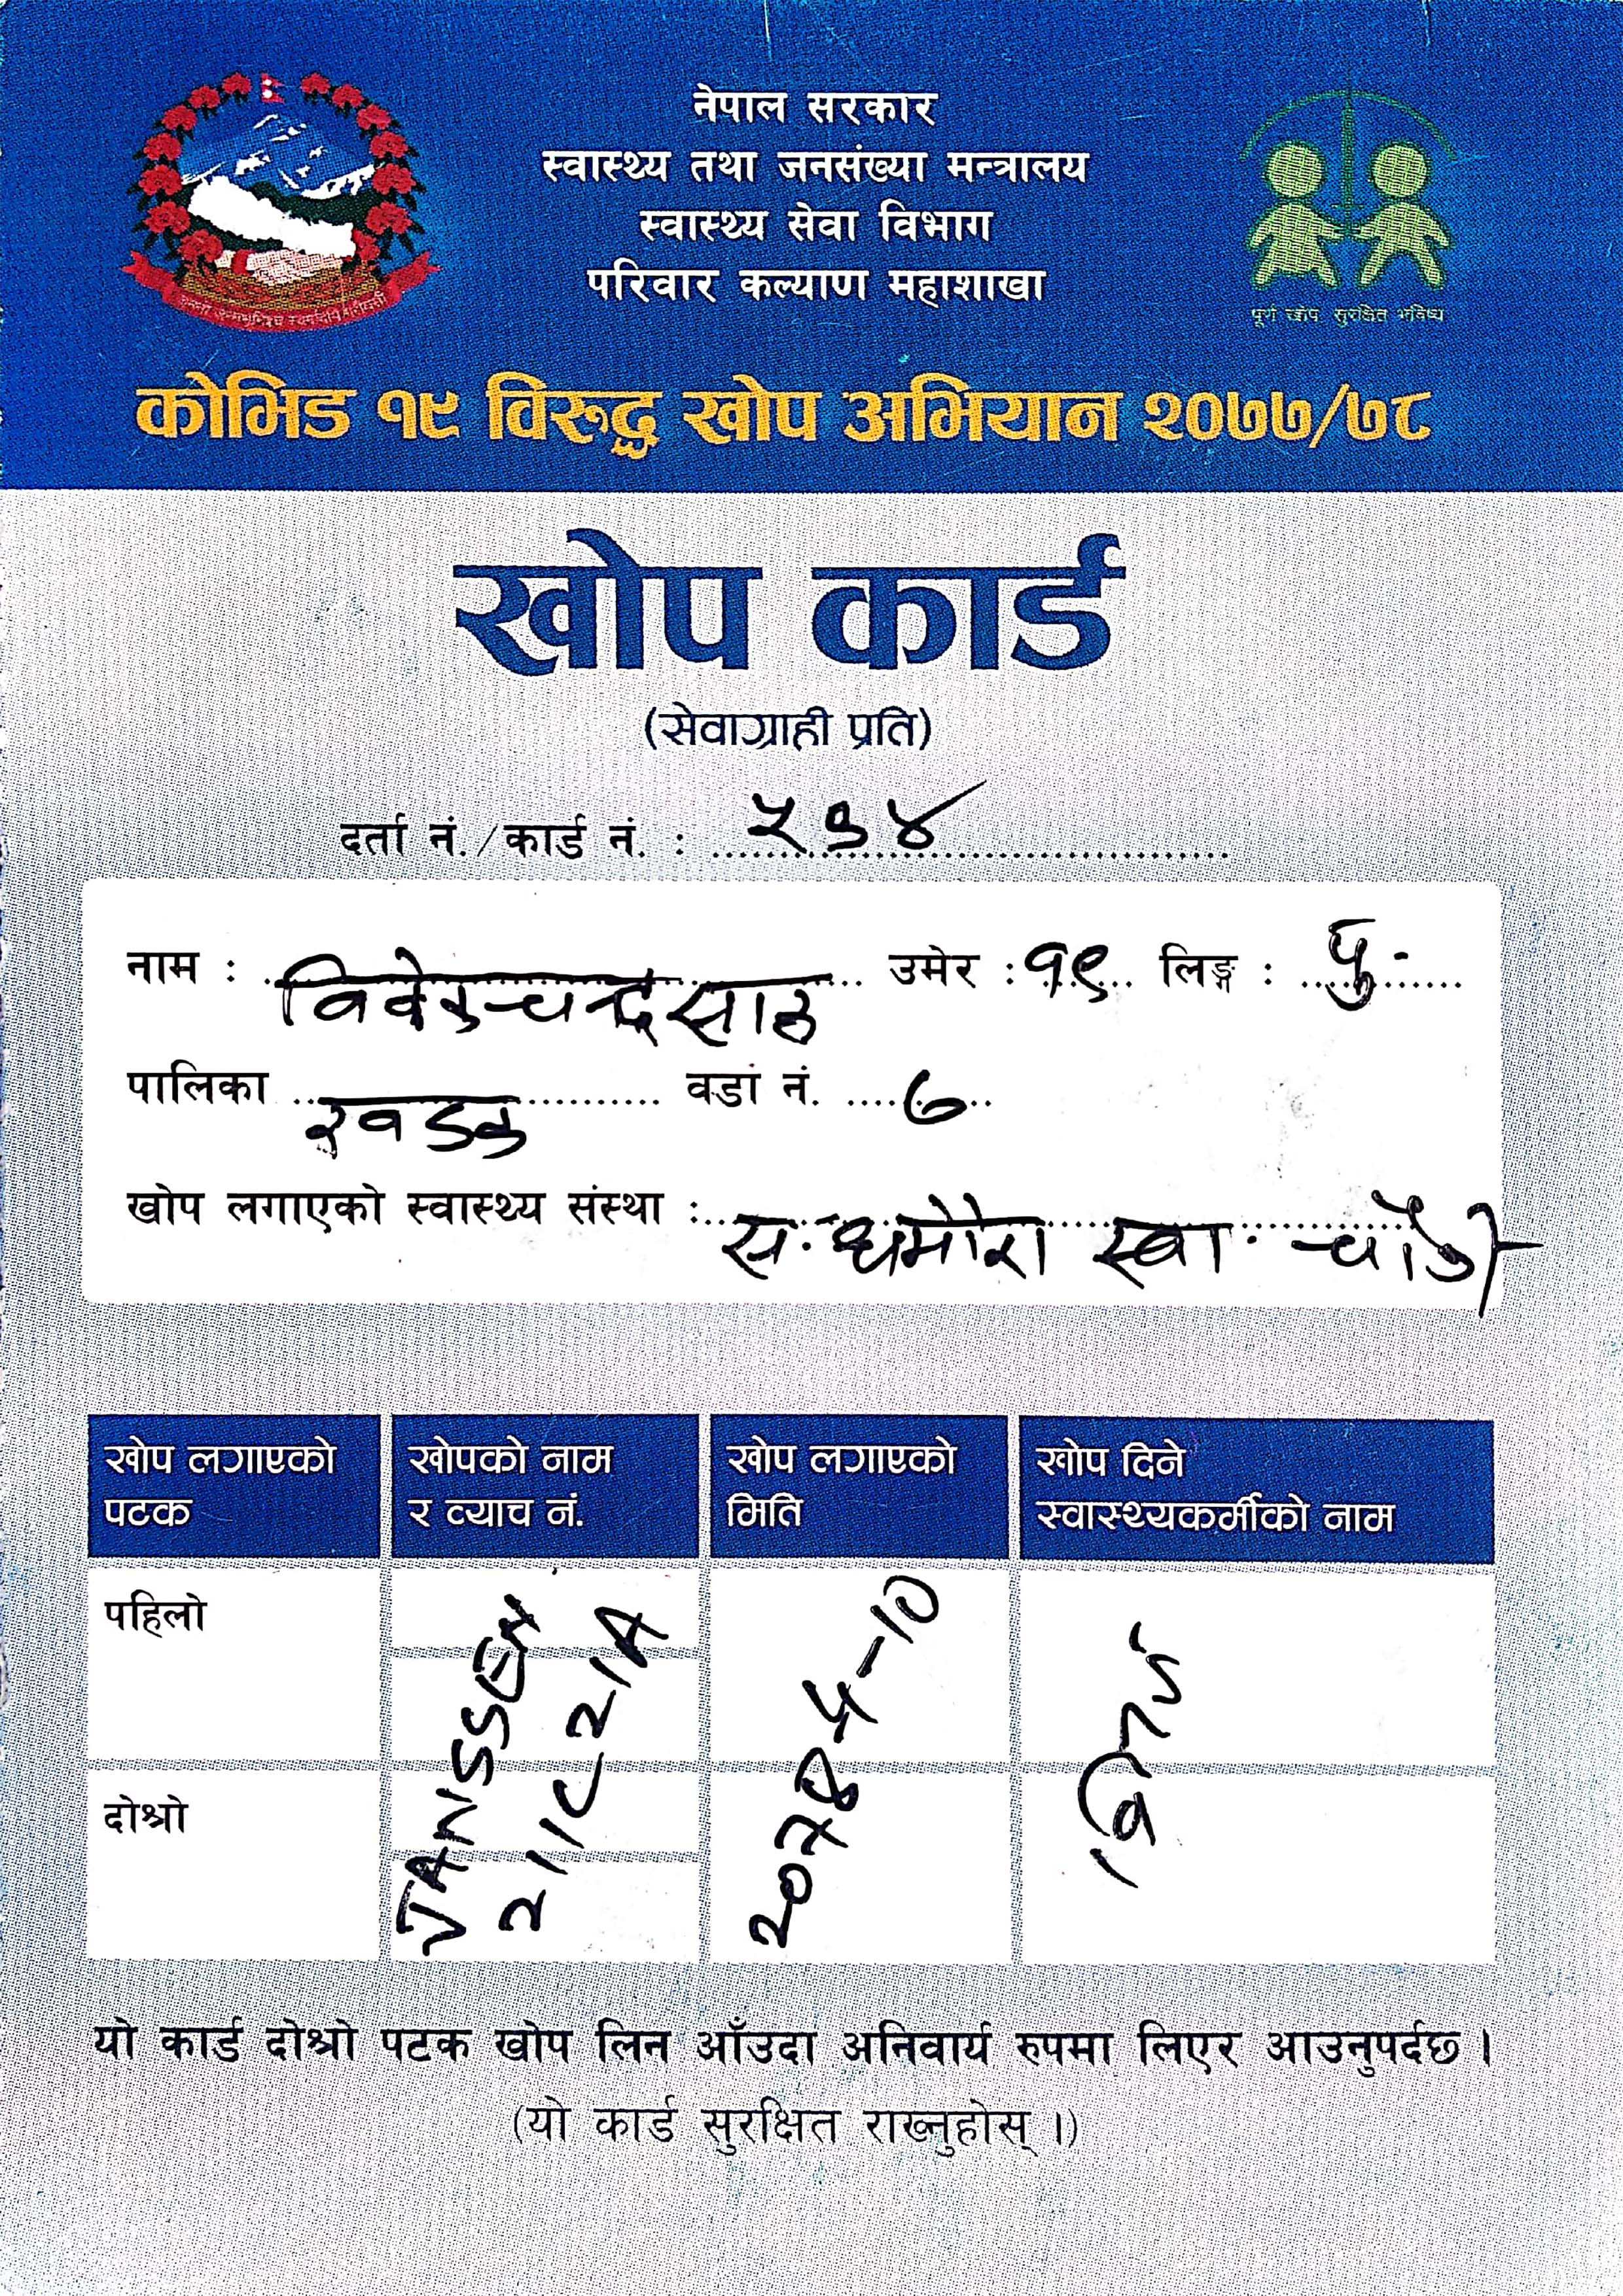 नेपाल सरकार
स्वास्थ्य तथा जनसंख्या मन्त्रालय
स्वास्थ्य सेवा विभाग
परिवार कल्याण महाशाखा
पूर्ण खोप सुरक्षित भविष्य
कोभिड १९ विरुद्ध खोप अभियान २०७७/७८
खोप कार्ड
(सेवाग्राही प्रति)
दर्ता नं./कार्ड नं. : २७४
नाम : विवेकचन्द्र साह उमेर : १९ लिङ्ग : पु.
पालिका खडक वडा नं. ७
खोप लगाएको स्वास्थ्य संस्था : स. धमौरा स्वा. चौकी
खोप लगाएको पटक
खोपको नाम र व्याच नं.
खोप लगाएको मिति
खोप दिने स्वास्थ्यकर्मीको नाम
पहिलो
JANSSEN
211C21A
2078-4-10
दोश्रो
यो कार्ड दोश्रो पटक खोप लिन आँउदा अनिवार्य रुपमा लिएर आउनुपर्दछ ।
(यो कार्ड सुरक्षित राख्नुहोस् ।)